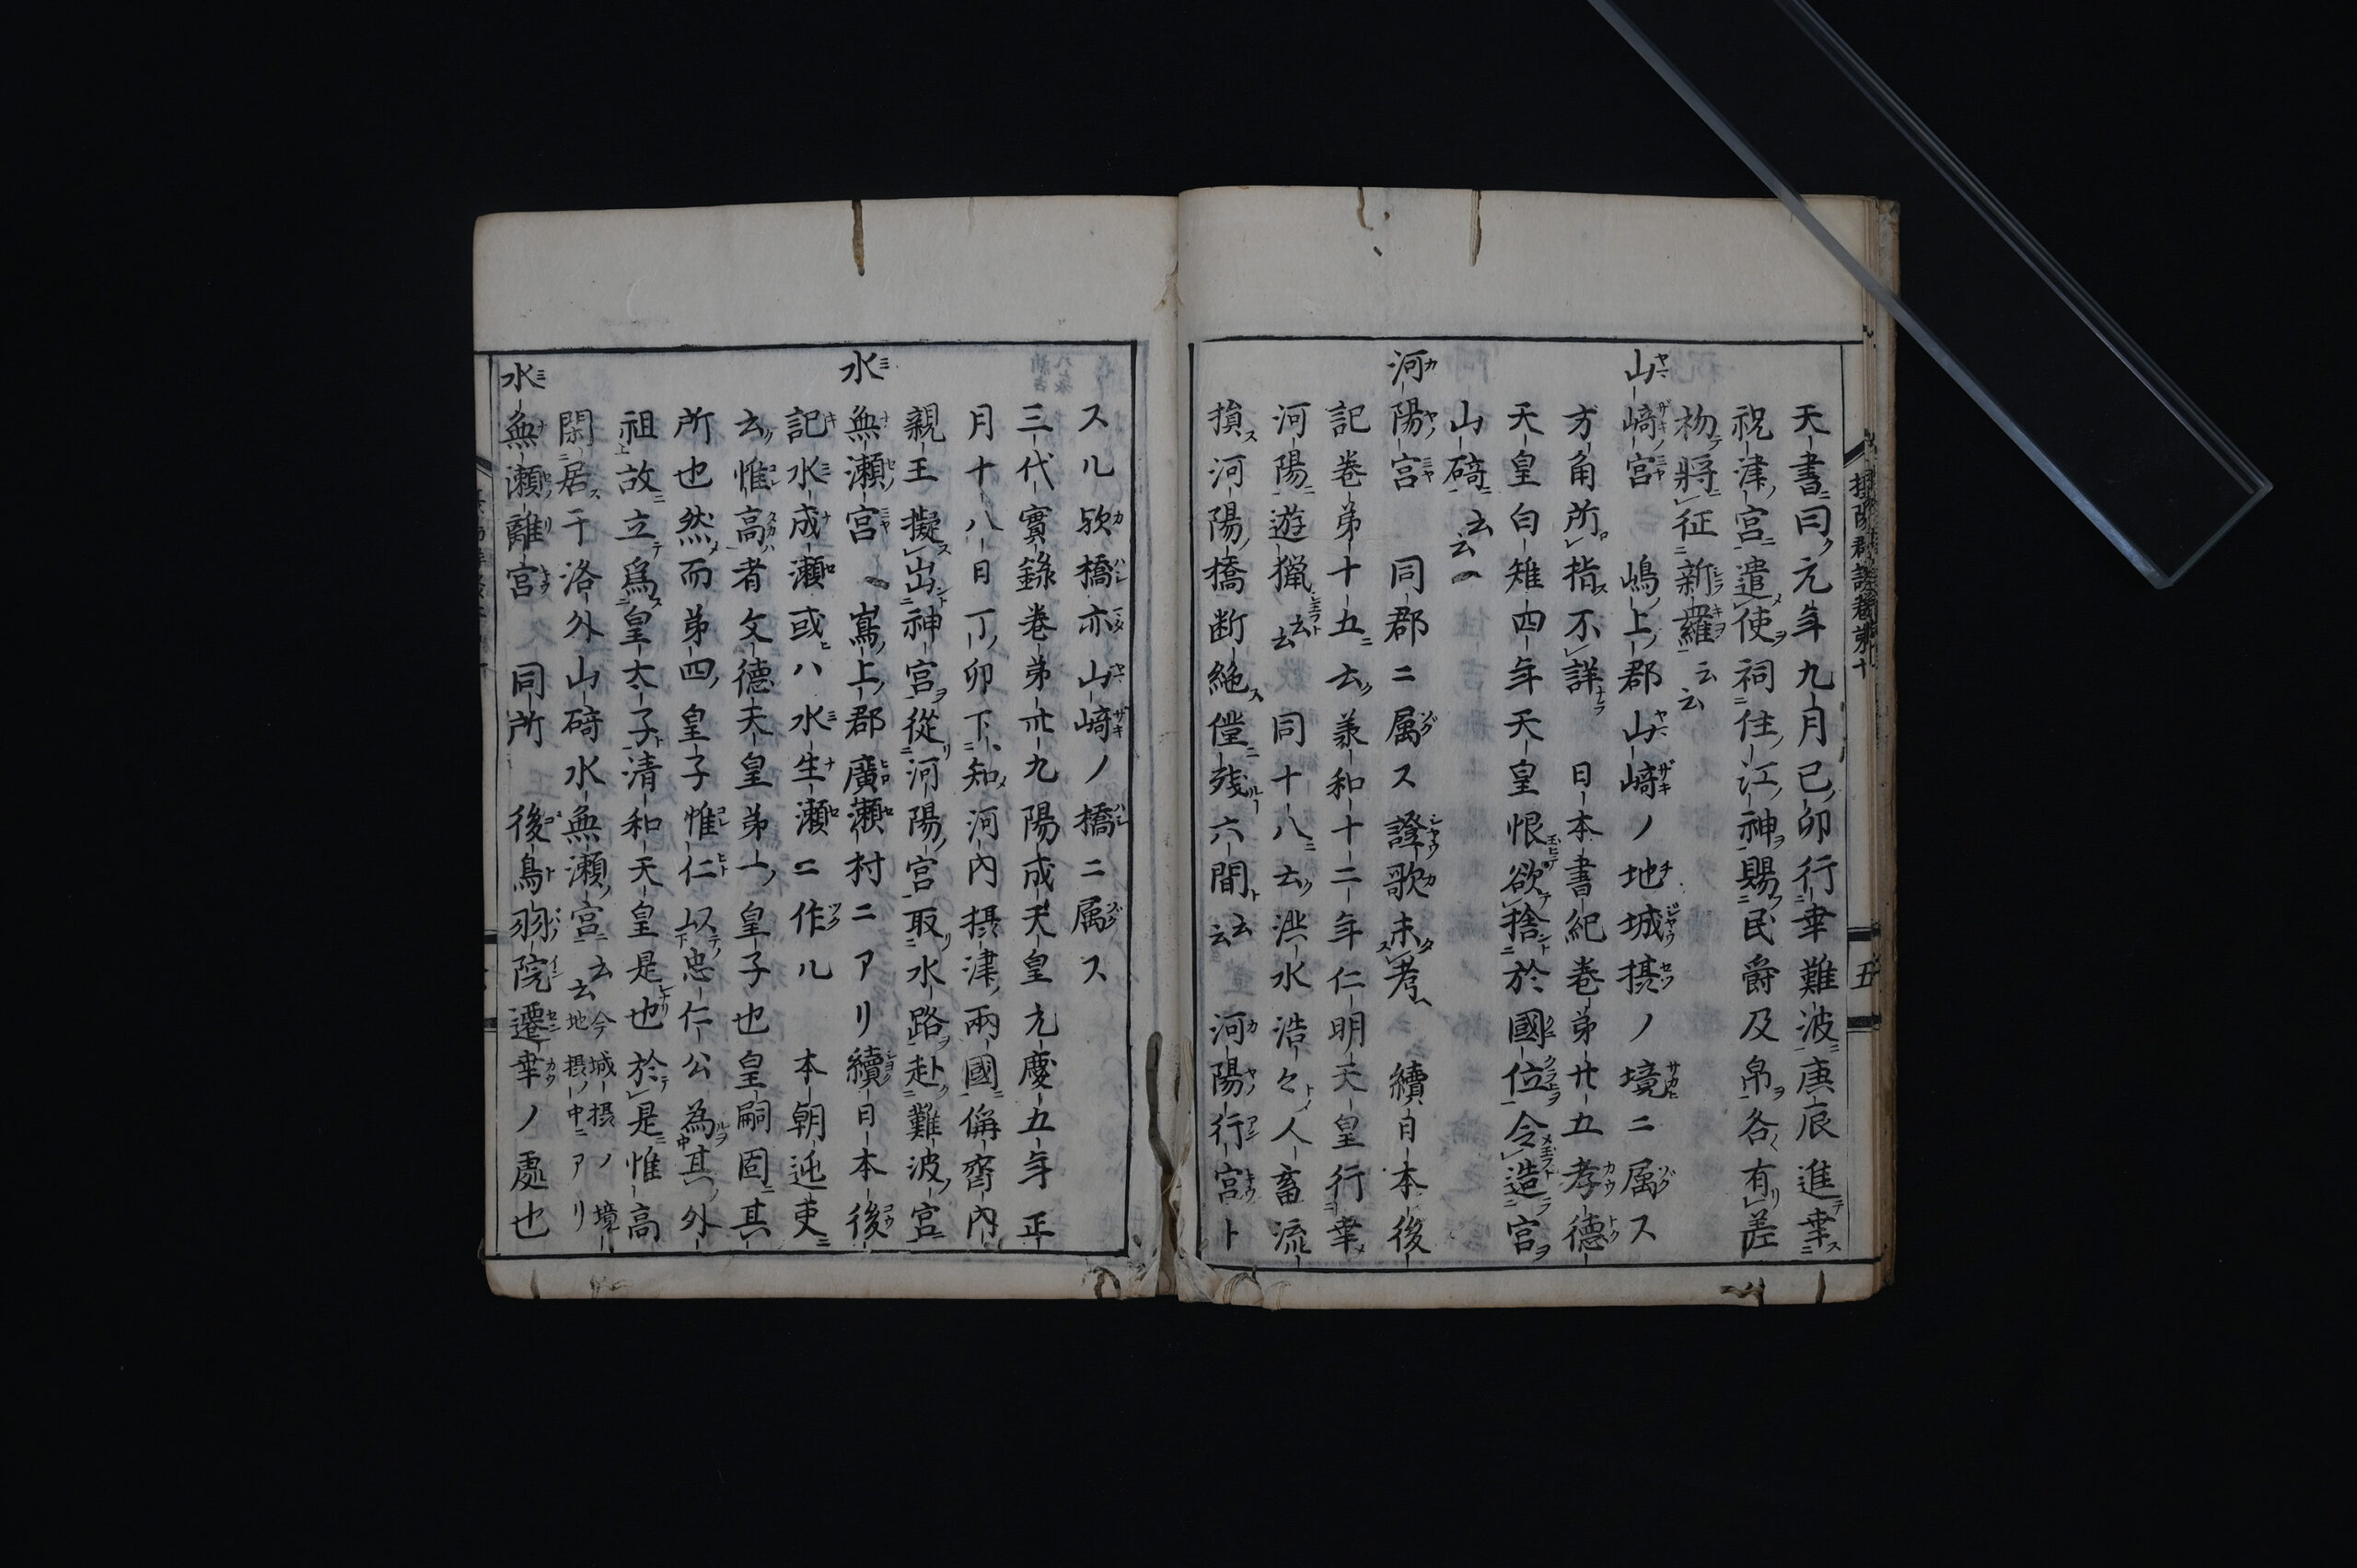 天書曰元年九月己卯行幸難波庚辰進幸
祝津宮遣使祠住江神賜民爵及帛各有差
物將征新羅云云
山﨑宮 嶋上郡山﨑ノ地城摂ノ境ニ属ス
方角所指不詳 日本書紀巻第廿五孝德
天皇白雉四年天皇恨欲捨於國位令造宮
山碕云云
河陽宮 同郡ニ属ス證歌未考 續日本後
記巻第十五云兼和十二年仁明天皇行幸
河陽遊猟云云 同十八云洪水浩々人畜流
損河陽橋断絶僅残六間云云 河陽行宮ト
スル欤橋亦山﨑ノ橋ニ属ス
三代實錄巻第卅九陽成天皇元慶五年正
月十八日丁卯下知河内摂津兩國偁齋内
親王擬出神宮從河陽宮取水路赴難波宮
水無瀬宮 嶌上郡廣瀬村ニアリ續日本後
記水成瀬或ハ水生瀬ニ作ル 本朝遁吏
云惟高者文德天皇弟一皇子也皇嗣固其
所也然而弟四皇子惟仁以忠仁公為其外
祖故立為皇太子清和天皇是也於是惟高
閑居于洛外山碕水無瀬宮云云 今城摂ノ境地摂ノ中ニアリ
水無瀬離宮 同所 後鳥羽院遷幸ノ處也
五